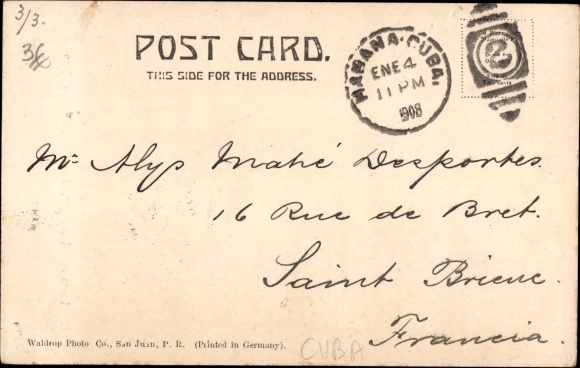 3/3.
3€
POST CARD.
THIS SIDE FOR THE ADDRESS.
HABANA·CUBA.
ENE 4
11 PM
1908
Mr Alys Mahé Desportes.
16 Rue de Bret.
Saint Brieuc.
Francia.
Waldrop Photo Co., San Juan, P. R. (Printed in Germany).
CUBA